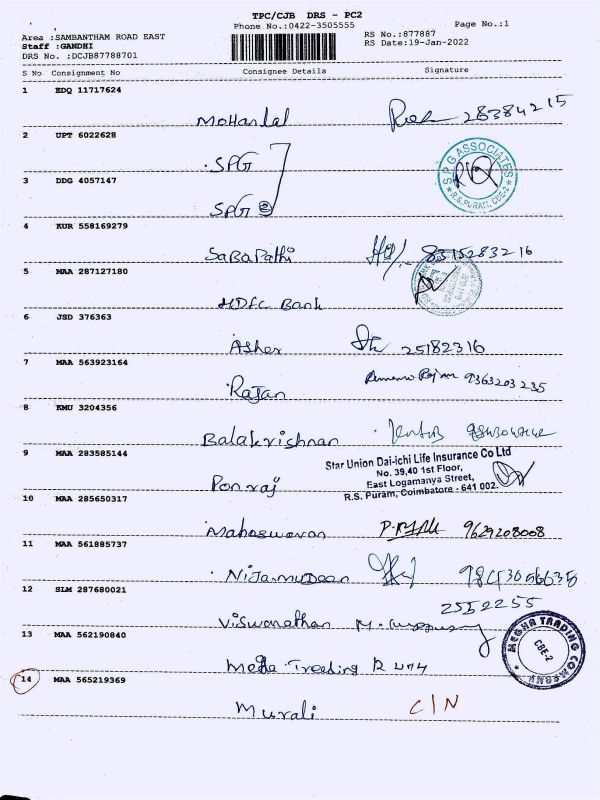 TPC/CJB DRS - PC2
Phone No.:0422-3505555
Page No.:1
Area :SAMBANTHAM ROAD EAST
Staff :GANDHI
DRS No. :DCJB87788701
RS No.:877887
RS Date:19-Jan-2022
S No Consignment No Consignee Details Signature
1 EDQ 11717624
Mohanlal 28384215
2 UPT 6022628
SPG
S.P.G ASSOCIATES
R.S.PURAM, CBE-2
3 DDG 4057147
SPG
4 KUR 558169279
Sabapathi 8315283216
5 MAA 287127180
HDFC Bank
6 JSD 376363
Asher 25182316
7 MAA 563923164
Rajan Rajan 9363203235
8 KMU 3204356
Balakrishnan
9 MAA 283585144
Ponraj
Star Union Dai-ichi Life Insurance Co Ltd
No. 39,40 1st Floor,
East Logamanya Street,
R.S. Puram, Coimbatore - 641 002.
10 MAA 285650317
Mahaswaran 9629208008
11 MAA 561885737
Nijamudeen
12 SLM 287680021
2552255
Viswanathan
13 MAA 562190840
Mega Treading
MEGHA TRADING COMPANY
CBE-2
14 MAA 565219369
Murali C/N